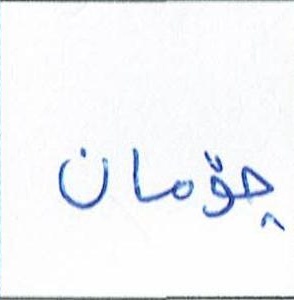 چۆمان